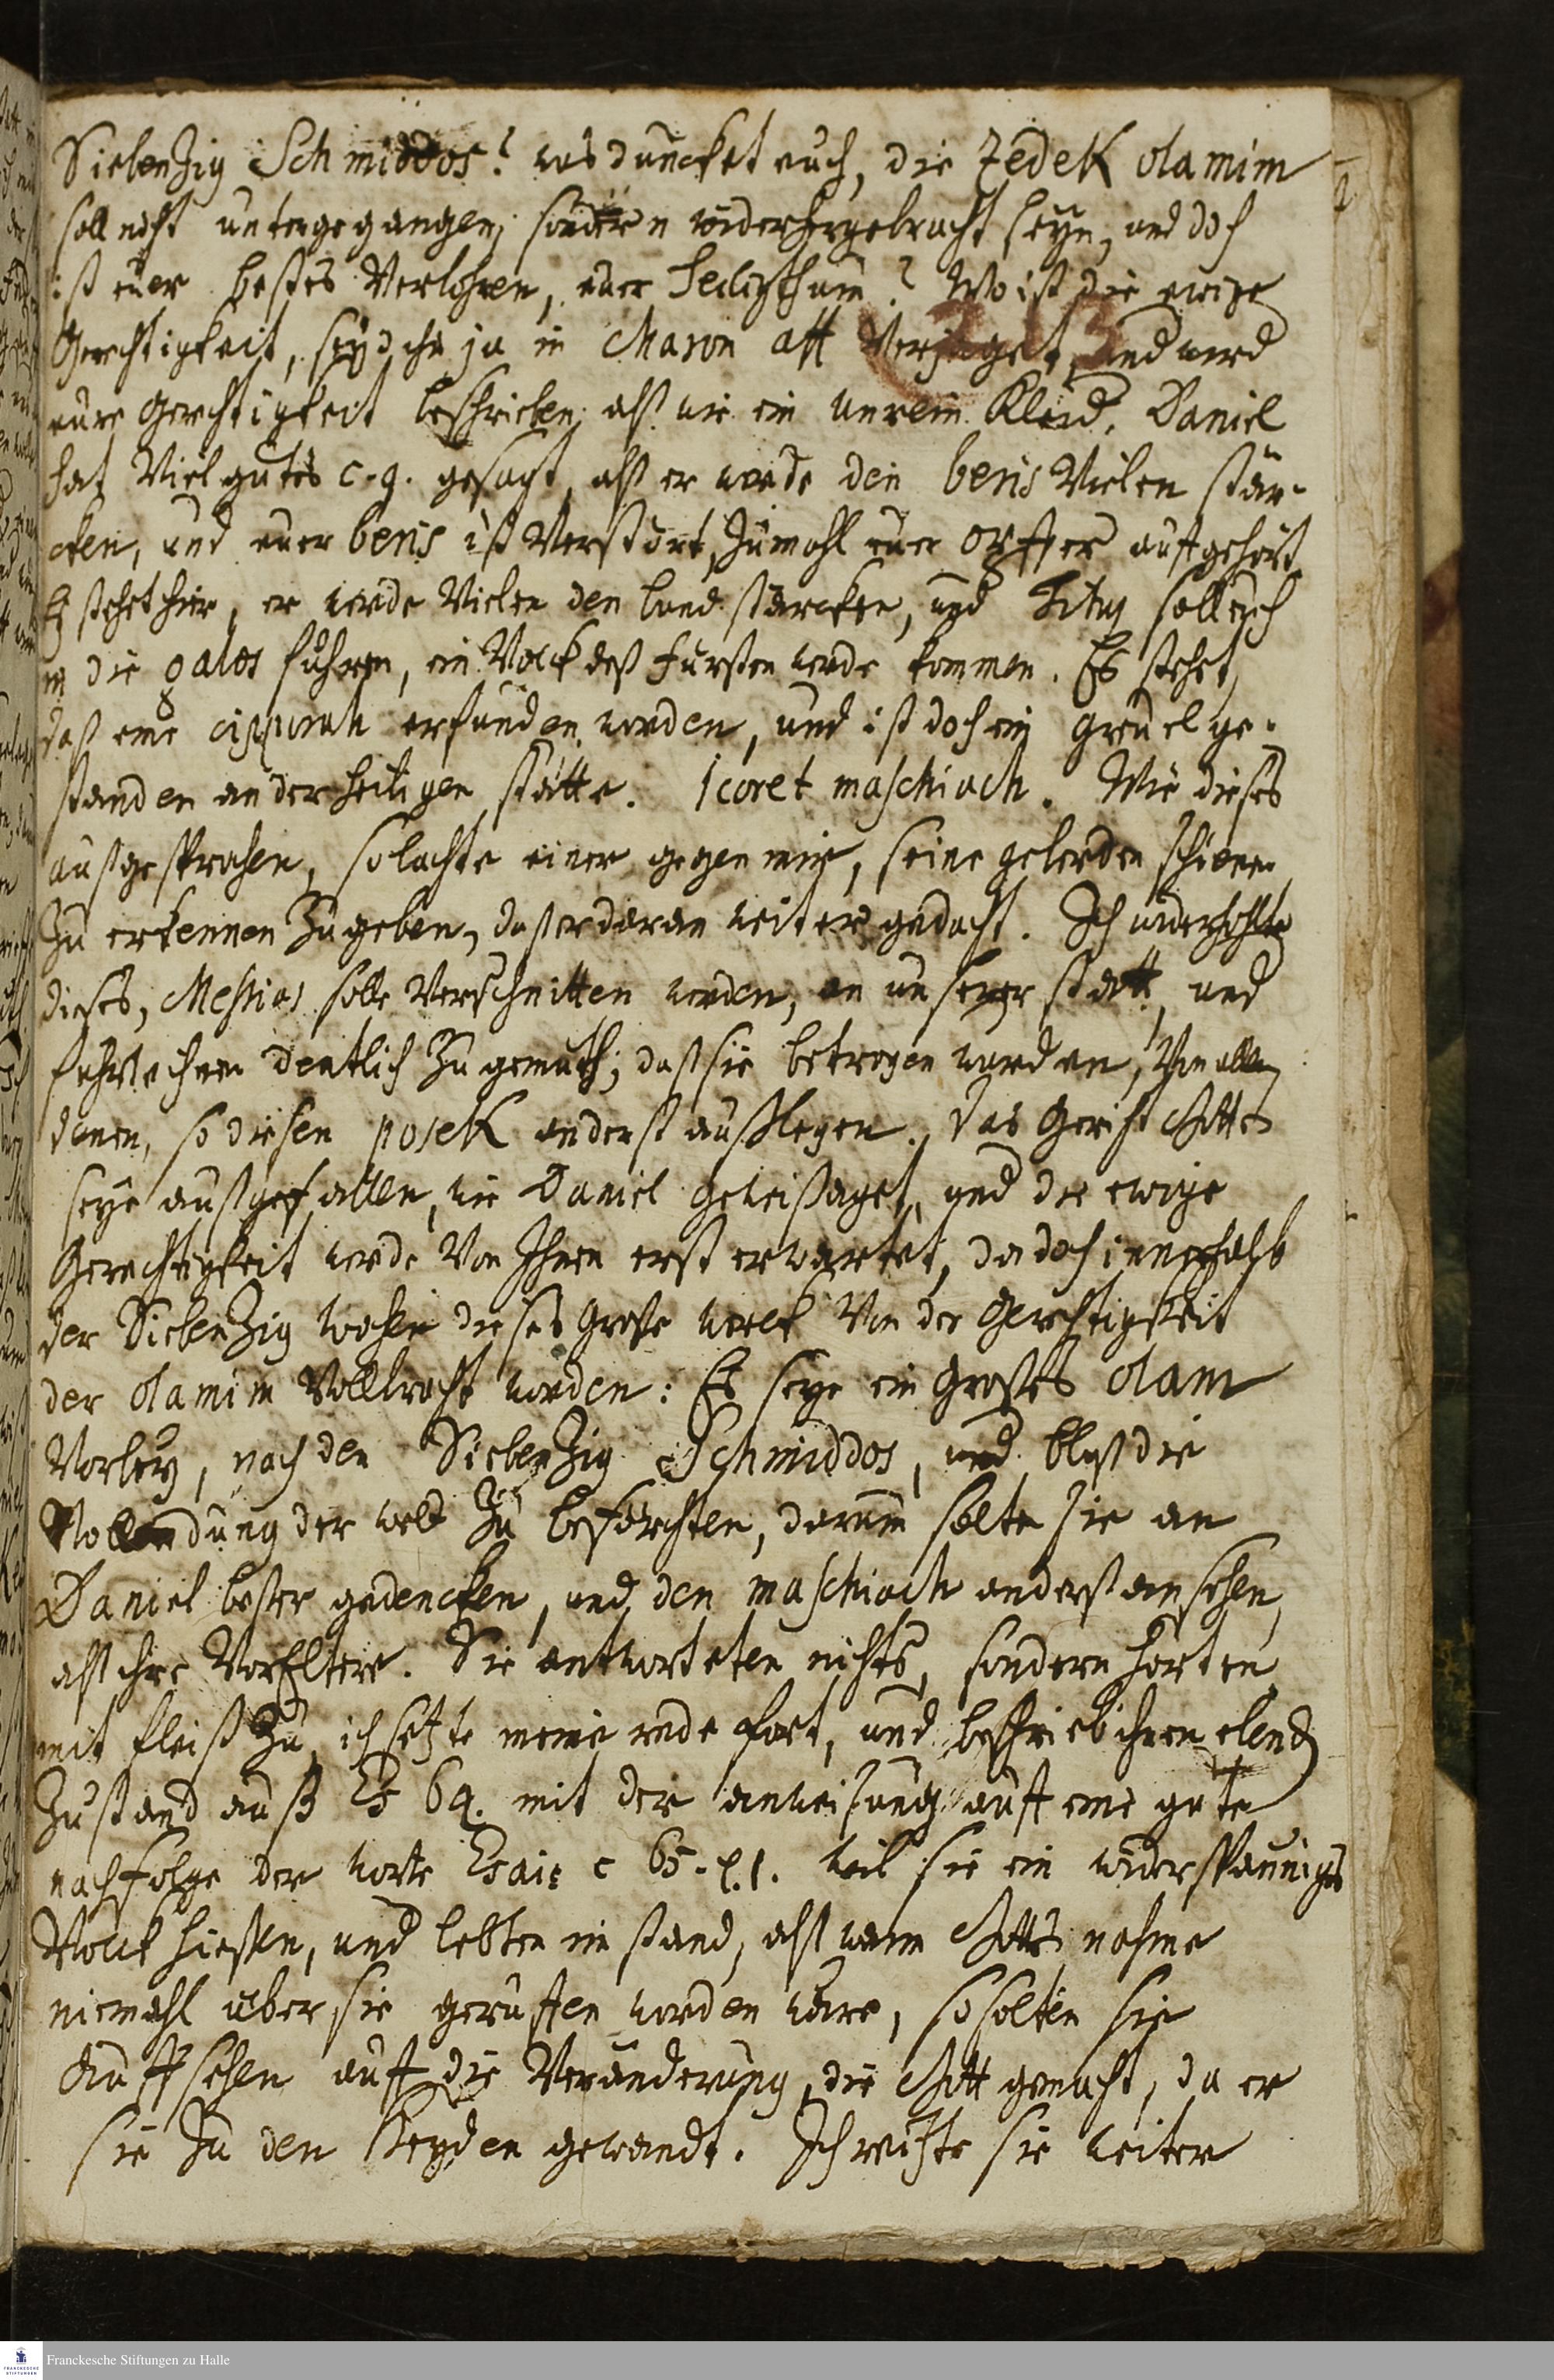 Siebenzig Schmiddos? was duncket euch, die zedek olamim
soll nicht untergegangen, sondern widerhergebracht seyn, und doch
ist euer bestes Verlohren, euer Heiligthum? Wo ist die ewige
Gerechtigkeit, seyd ihr ja in Maron att Verjaget, und wird
eure Gerechtigkeit beschrieben, alß wie ein unrein Kleid. Daniel
hat Viel gutes c. 9. gesagt, alß er werde den beris Vielen stär-
cken, und euer beris ist Verstört, Zumahl euer Opffer auffgehört
Es stehet hier, er werde Vielen den bund stärcken, und Titus soll euch
in die galos führen, ein Volck deß Fürsten werde kommen. Es stehet,
daß eine cippurah erfunden worden, und ist doch ein greuel ge-
standen an der heiligen stätte. Icoret maschiach. Wie dieses
außgesprochen, so lachte einer gegen mir, seine geberden schienen
Zu erkennen Zugeben, daß er daran weiter gedacht. Ich widerhohlte
dieses, Messias solle Verschnitten werden, an unserer statt, und
führte ihnen deutlich Zu gemuth, daß sie betrogen worden, Von allen
denen, so diesen posek anderst außlegen. Das Gericht Gottes
seye außgefallen, wie Daniel geweissaget, und die ewige
Gerechtigkeit werde Von Ihnen erst erwartet, da doch innerhalb
der Siebenzig wochen dieses große werck Von der Gerechtigkeit
der olamim Vollbracht worden: Es seye ein großes olam
Vorbey, nach den Siebenzig Schmiddos, und bloß die
Vollendung der welt Zu beförchten, darum solten sie an
Daniel besser gedencken, und den maschiach anderst ansehen,
alß ihre VorEltern. Sie antworteten nichts, sondern hörten
mit fleiß Zu, ich setzte meine rede fort, und beschrieb ihren elend
Zustand auß Es 64. mit der anweisung auff eine gute
nachfolge der worte Esaiæ c 65. v. 1. weil sie ein widerspänniges
Volck hiessen, und lebten im stand, alß wann Gottes nahme
niemahl über sie geruffen worden wäre, so solten sie
Auffsehen auff die Veränderung, die Gott gemacht, da er
sie Zu den Heyden gewandt. Ich weißte sie weiter
Franckesche Stiftungen zu Halle